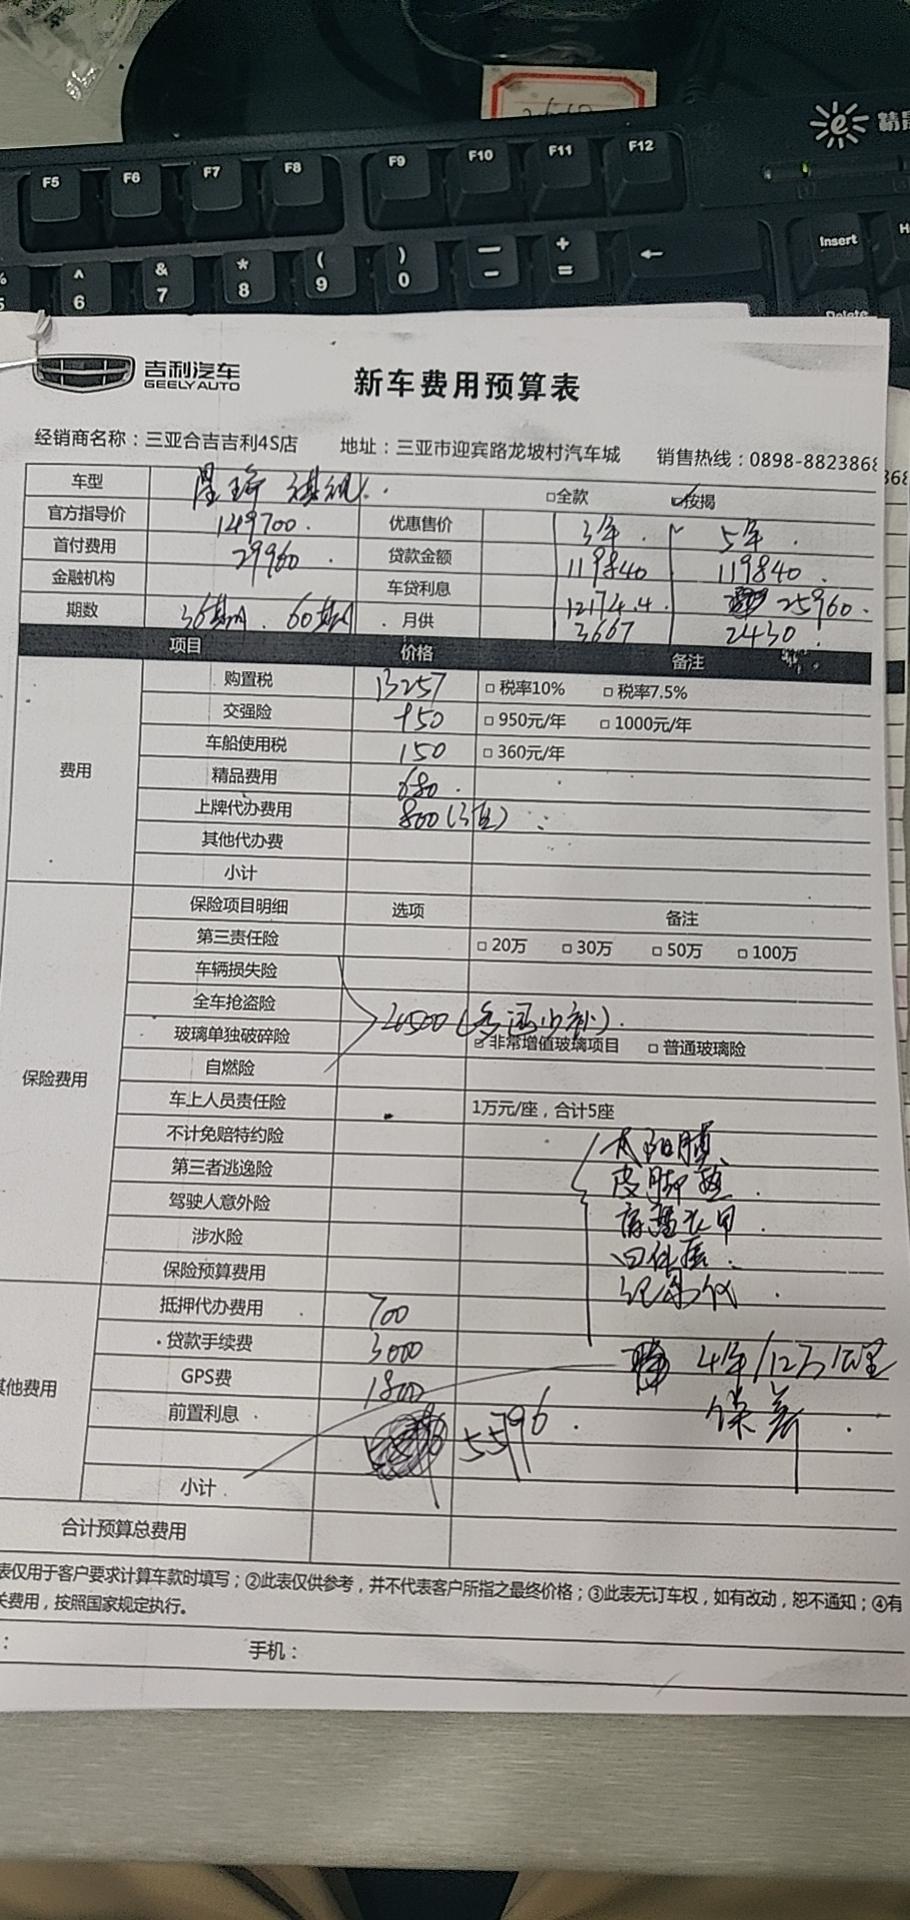 F5 F6 F7 F8 F9 F10 F11 F12
精晟
Insert
Delete
^ & * ( ) — +
6 7 8 9 0 - = ←
吉利汽车
GEELY AUTO
新车费用预算表
经销商名称：三亚合吉吉利4S店 地址：三亚市迎宾路龙坡村汽车城 销售热线：0898-8823868
车型 星瑞 旗舰 □全款 ☑按揭
官方指导价 149700. 优惠售价 3年. 5年.
首付费用 29960 贷款金额 119840 119840.
金融机构 车贷利息 12174.4. 25960.
期数 36期、60期 月供 3667 2430.
项目 价格 备注
费用
购置税 13257 □税率10% □税率7.5%
交强险 950 □950元/年 □1000元/年
车船使用税 150 □360元/年
精品费用 680.
上牌代办费用 800
其他代办费
小计
保险项目明细 选项 备注
保险费用
第三责任险 □20万 □30万 □50万 □100万
车辆损失险
全车抢盗险 4500(多退少补).
玻璃单独破碎险 ☑非常增值玻璃项目 □普通玻璃险
自燃险
车上人员责任险 1万元/座，合计5座
不计免赔特约险 太阳膜
第三者逃逸险 皮脚垫
驾驶人意外险 底盘装甲
涉水险
保险预算费用 记录仪
其他费用
抵押代办费用 700
贷款手续费 3000 4年/12万公里
GPS费 1800 保养
前置利息
55796.
小计
合计预算总费用
表仅用于客户要求计算车款时填写；②此表仅供参考，并不代表客户所指之最终价格；③此表无订车权，如有改动，恕不通知；④有
关费用，按照国家规定执行。
： 手机：